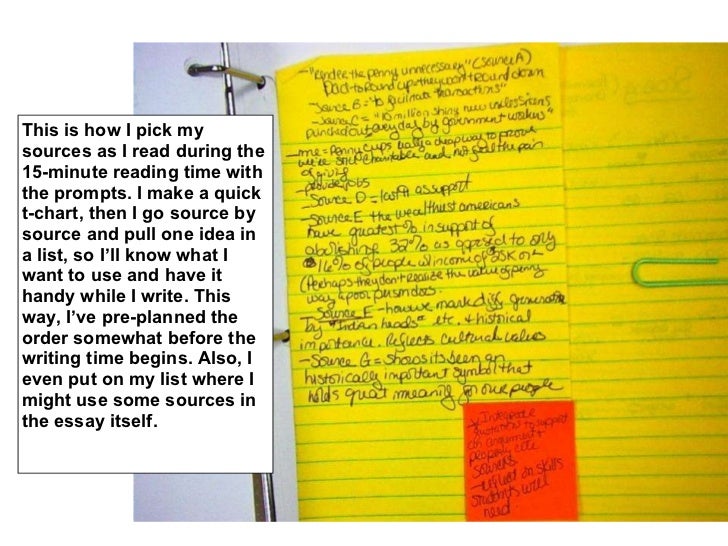 This is how I pick my
sources as I read during the
15-minute reading time with
the prompts. I make a quick
t-chart, then I go source by
source and pull one idea in
a list, so I’ll know what I
want to use and have it
handy while I write. This
way, I’ve pre-planned the
order somewhat before the
writing time begins. Also, I
even put on my list where I
might use some sources in
the essay itself.
"render the penny unnecessary" (source A)
Source B = "to facilitate transactions"
Source C = "10 million shiny new
punched out every day by government workers"
me = penny cups really a cheap way to prove
we're still charitable and not feel the pain
of giving
provide jobs
Source D = last # as support
Source E the wealthiest americans
have greatest % in support of
abolishing 32% as opposed to only
16% of people w/ income of 25K or
(Perhaps they don't realize the value of penny
way a poor person does.
Source F - how we mark diff generations
by "Indian heads" etc. + historical
importance. Reflects cultural values
Source G = shows its been an
historically important symbol that
holds great meaning for our people
Integrate
quotations to support
an argument
properly cite
sources
reflect on skills
students will
need.